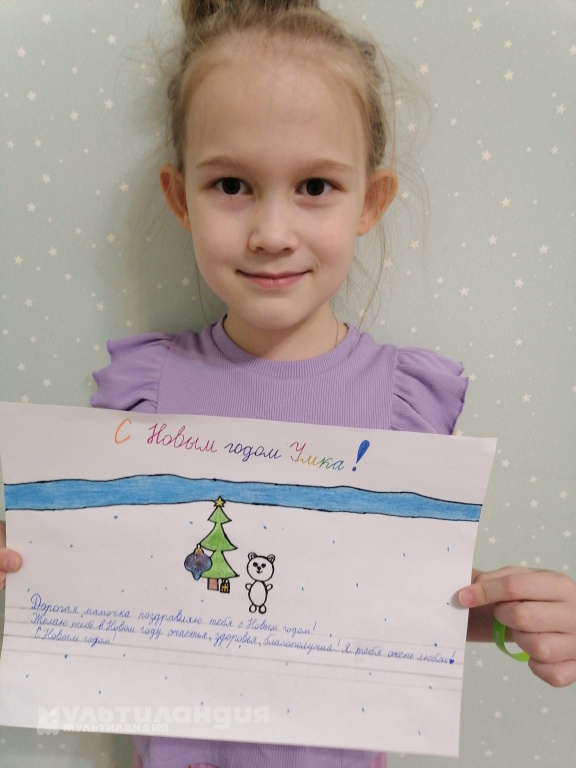 С Новым годом Умка!
Дорогая мамочка поздравляю тебя с Новым годом!
Желаю тебе в Новом году счастья, здоровья, благополучия! Я тебя очень люблю!
С Новым годом!
мультиландия
МУЛЬТИЛАНДИЯ